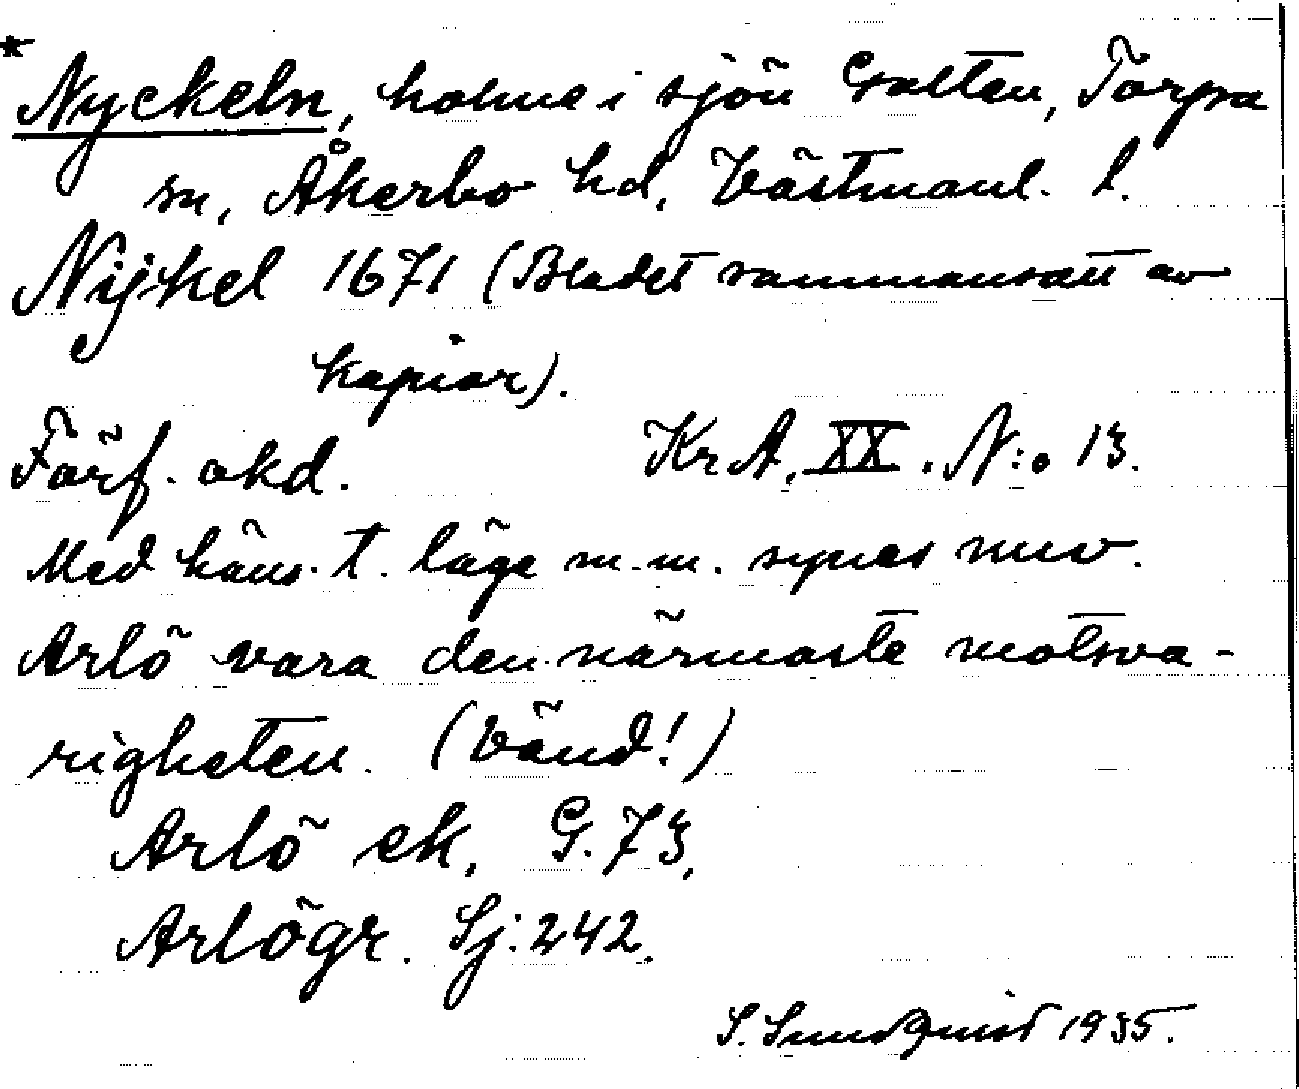 * Nyckeln, holme i sjön Galten, Torpa
sn, Åkerbo hd, Västmanl. l.
Nÿkel 1671 (Bladet sammansatt av
kopior).
Förf. okd. KrA, XX. N:o 13.
Med häns. t. läge m.m. synes nuv.
Arlö vara den närmaste motsva-
righeten. (Vänd!)
Arlö ek, G. 73,
Arlögr. Sj: 242.
S. Sundquist 1935.